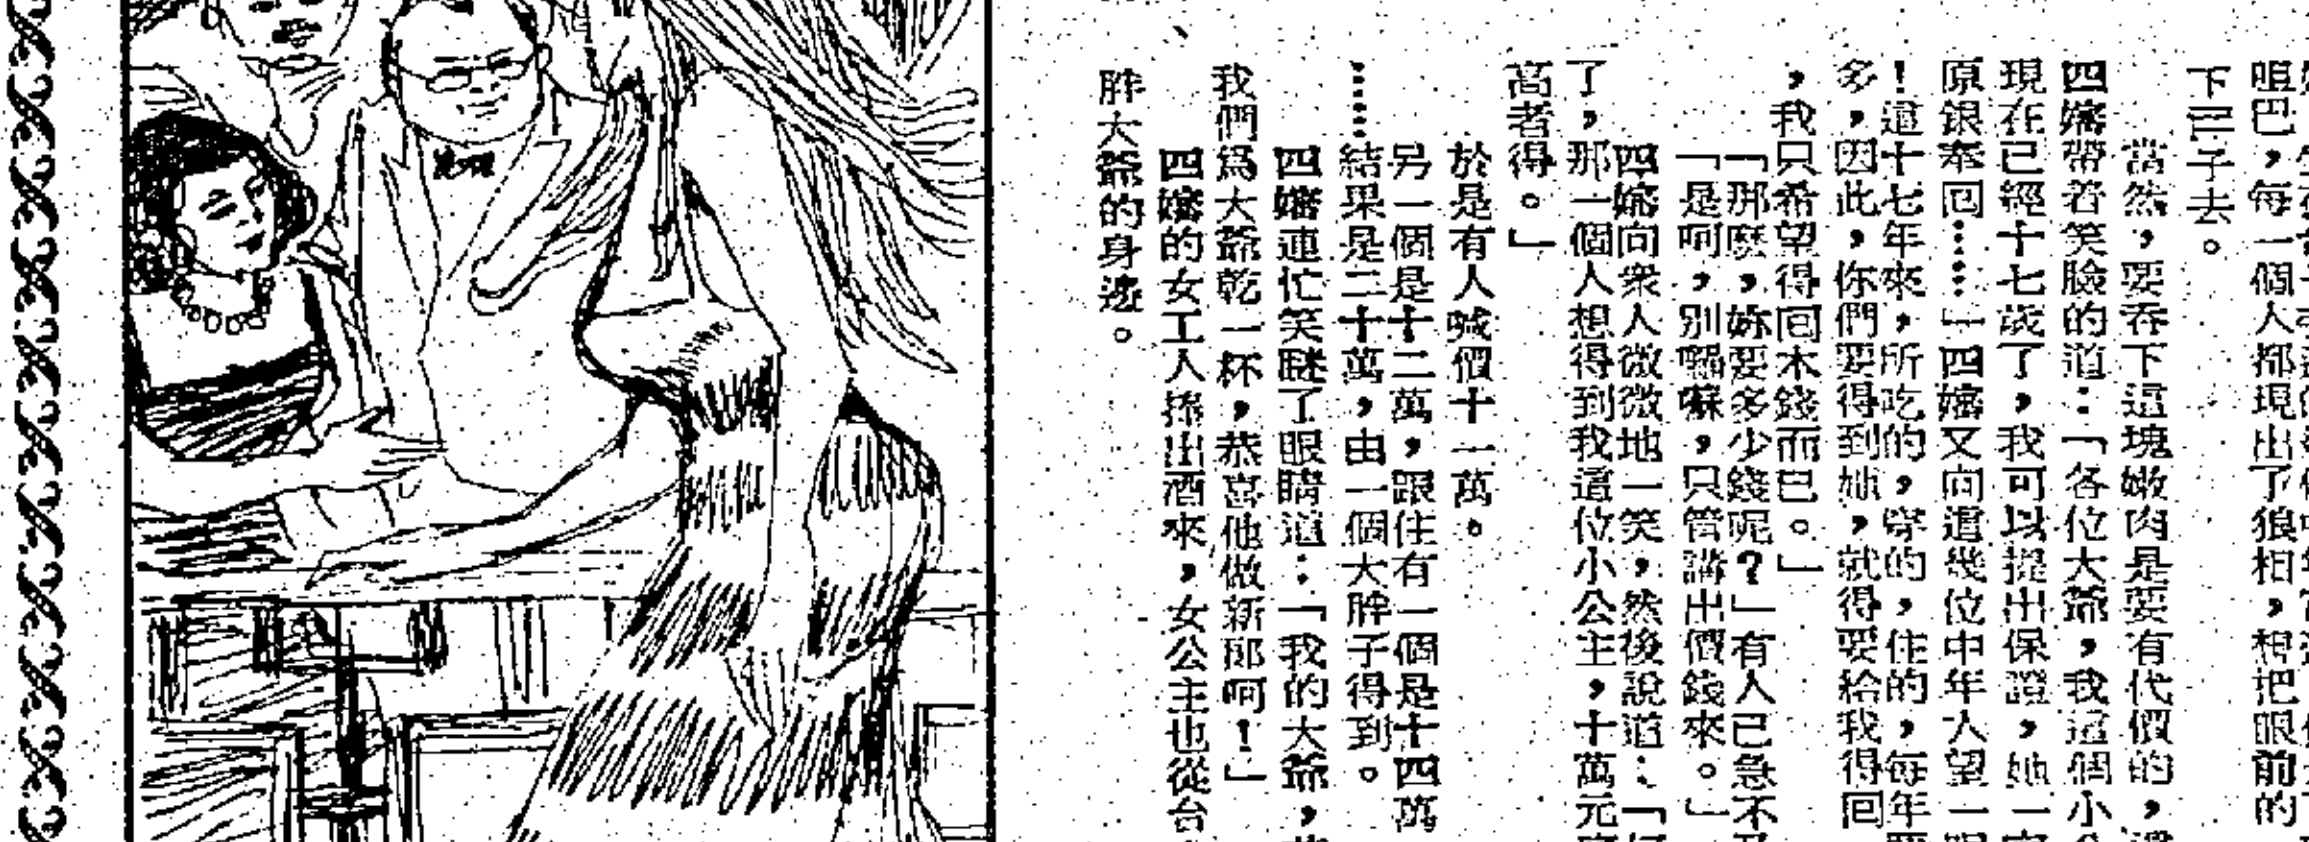 咀巴，每一個人都現出了狼相，想把眼前的
下肚子去。
當然，要吞下這塊嫩肉是要有代價的，還
四嬸帶着笑臉的道：「各位大爺，我這個小
現在已經十七歲了，我可以提出保證，她一
原銀奉回……」四嬸又向這幾位中年人望一眼
！這十七年來，所吃的，穿的，住的，每年要
多，因此，你們要得到她，就得要給我得回
，我只希望得回本錢而已。」
「那麽，妳要多少錢呢？」有人已急不及
「是呵，別囉囌，只管講出價錢來。」
四嬸向衆人微微地一笑，然後說道：「好
了，那一個人想得到我這位小公主，十萬元
高者得。」
於是有人喊價十一萬。
另一個是十二萬，跟住有一個是十四萬
……結果是二十萬，由一個大胖子得到。
四嬸連忙笑瞇了眼睛道：「我的大爺，
我們爲大爺乾一杯，恭喜他做新郎呵！」
四嬸的女工人捧出酒來，女公主也從台
胖大爺的身邊。